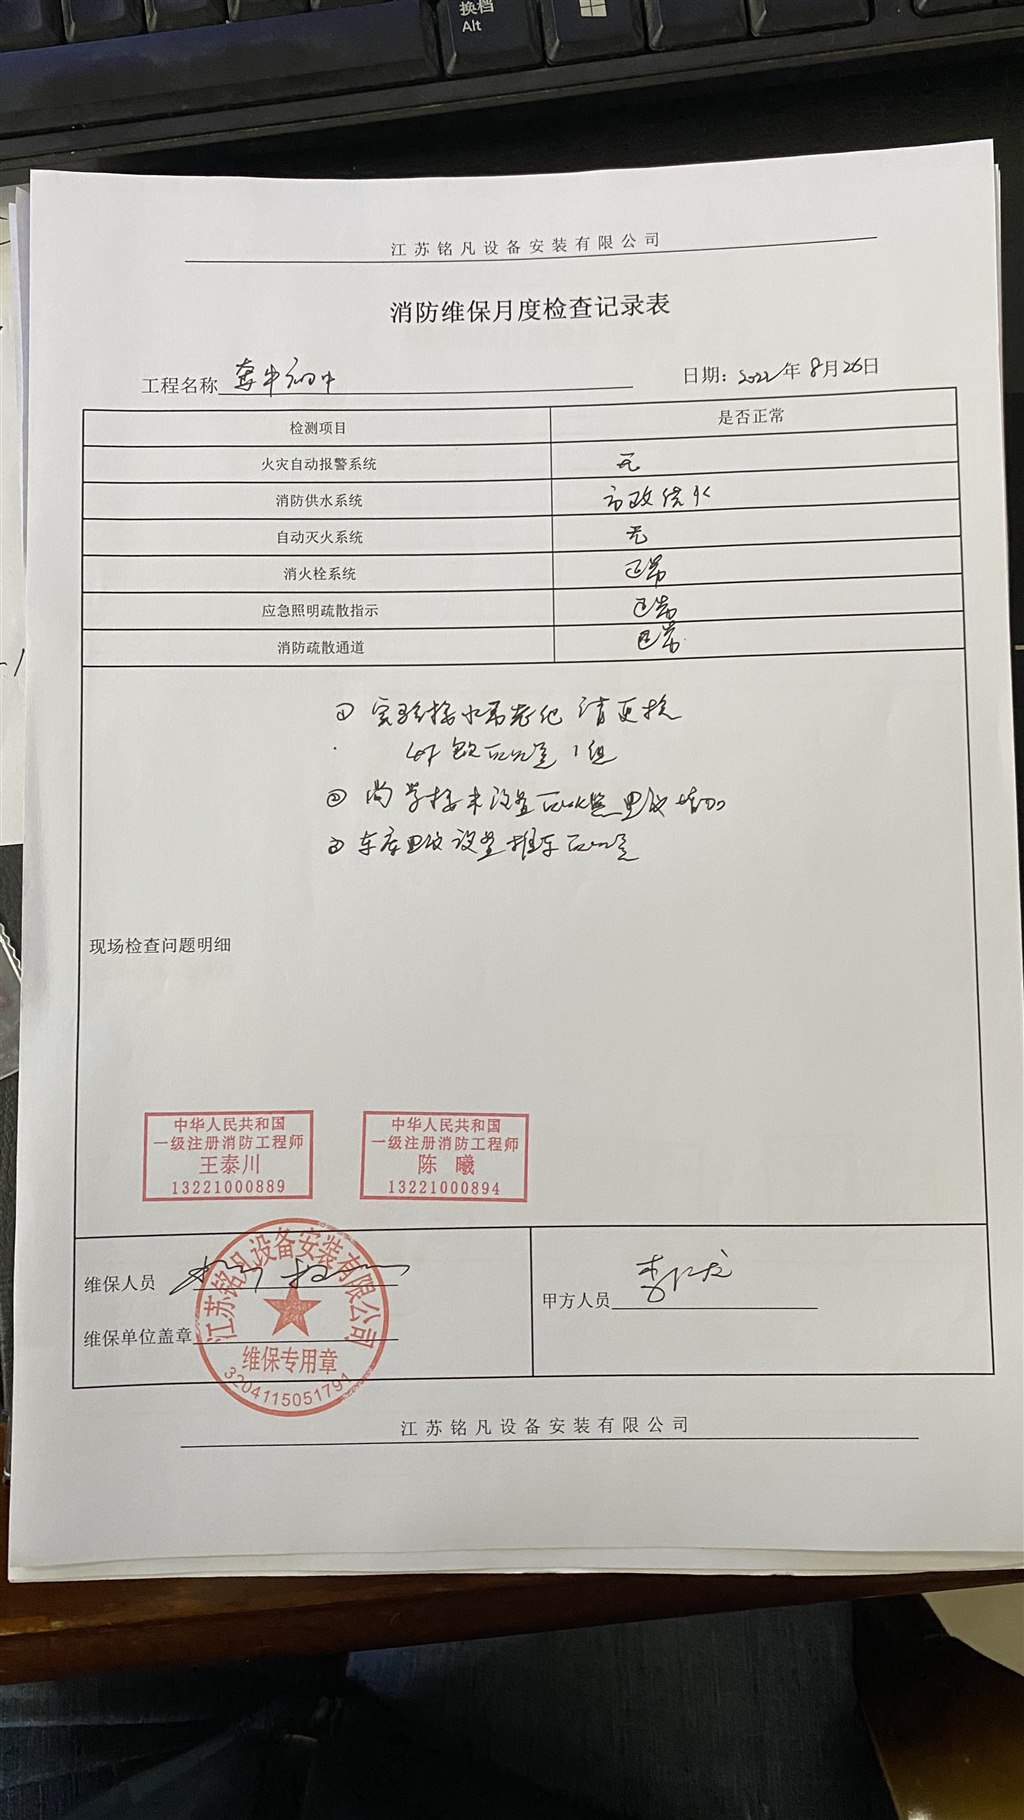 换档
Alt
江苏铭凡设备安装有限公司
消防维保月度检查记录表
工程名称 奔牛初中 日期：2022年8月26日
检测项目 是否正常
火灾自动报警系统 无
消防供水系统 市政供水
自动灭火系统 无
消火栓系统 正常
应急照明疏散指示 正常
消防疏散通道 正常
① 实验楼水带老化 请更换
4F 缺灭火器 1组
② 尚学楼未设置
③ 车库 设置推车灭火器
现场检查问题明细
中华人民共和国
一级注册消防工程师
王泰川
13221000889
中华人民共和国
一级注册消防工程师
陈 曦
13221000894
维保人员
甲方人员
维保单位盖章
江苏铭凡设备安装有限公司
维保专用章
3204115051791
江苏铭凡设备安装有限公司